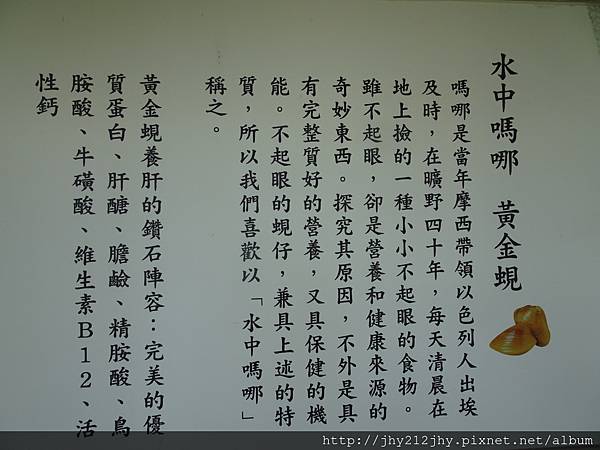 水中嗎哪 黃金蜆
嗎哪是當年摩西帶領以色列人出埃
及時，在曠野四十年，每天清晨在
地上撿的一種小小不起眼的食物。
雖不起眼，卻是營養和健康來源的
奇妙東西。探究其原因，不外是具
有完整質好的營養，又具保健的機
能。不起眼的蜆仔，兼具上述的特
質，所以我們喜歡以「水中嗎哪」
稱之。
黃金蜆養肝的鑽石陣容：完美的優
質蛋白、肝醣、膽鹼、精胺酸、鳥
胺酸、牛磺酸、維生素B12、活
性鈣
http://jhy212jhy.pixnet.net/album